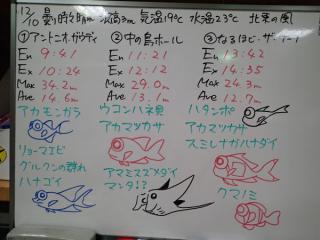 12/10 曇り時々晴れ 波高3m 気温19℃ 水温23℃ 北東の風
①アントニオガウディ
En 9:41
Ex 10:24
Max 34.2m
Ave 14.6m
アカモンガラ
リョーマエビ
グルクンの群れ
ハナゴイ
②中の島ホール
En 11:21
Ex 12:12
Max 29.0m
Ave 13.1m
ウコンハネ貝
アカマツカサ
アマミスズメダイ
マンタ!?
③なるほど・ザ・ケーブ
En 13:42
Ex 14:35
Max 24.3m
Ave 12.7m
ハタンポ
アカマツカサ
スミレナガハナダイ
クマノミ